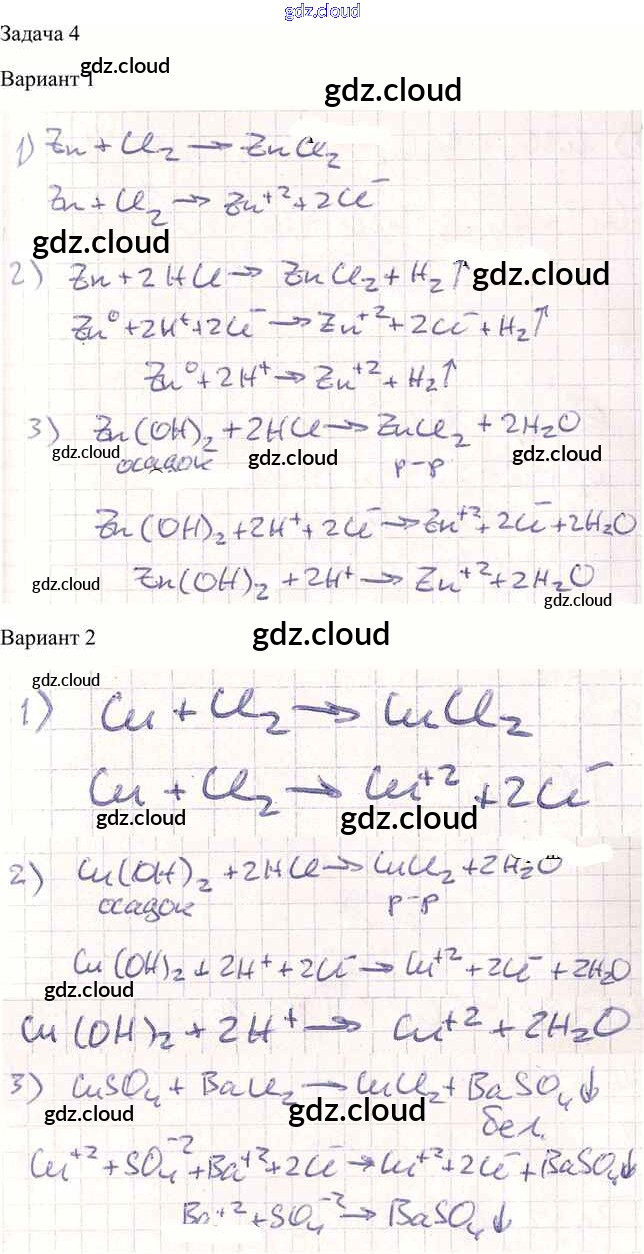 gdz.cloud
Задача 4
gdz.cloud
Вариант 1
gdz.cloud
1) Zn + Cl₂ → ZnCl₂
Zn + Cl₂ → Zn⁺² + 2Cl⁻
gdz.cloud
2) Zn + 2HCl → ZnCl₂ + H₂↑ gdz.cloud
Zn⁰ + 2H⁺ + 2Cl⁻ → Zn⁺² + 2Cl⁻ + H₂↑
Zn⁰ + 2H⁺ → Zn⁺² + H₂↑
3) Zn(OH)₂ + 2HCl → ZnCl₂ + 2H₂O
gdz.cloud осадок gdz.cloud р-р gdz.cloud
Zn(OH)₂ + 2H⁺ + 2Cl⁻ → Zn⁺² + 2Cl⁻ + 2H₂O
Zn(OH)₂ + 2H⁺ → Zn⁺² + 2H₂O
gdz.cloud
gdz.cloud
Вариант 2
gdz.cloud
gdz.cloud
1) Cu + Cl₂ → CuCl₂
Cu + Cl₂ → Cu⁺² + 2Cl⁻
gdz.cloud gdz.cloud
2) Cu(OH)₂ + 2HCl → CuCl₂ + 2H₂O
осадок р-р
Cu(OH)₂ + 2H⁺ + 2Cl⁻ → Cu⁺² + 2Cl⁻ + 2H₂O
gdz.cloud
Cu(OH)₂ + 2H⁺ → Cu⁺² + 2H₂O
3) CuSO₄ + BaCl₂ → CuCl₂ + BaSO₄↓
gdz.cloud gdz.cloud бел.
Cu⁺² + SO₄⁻² + Ba⁺² + 2Cl⁻ → Cu⁺² + 2Cl⁻ + BaSO₄↓
Ba⁺² + SO₄⁻² → BaSO₄↓